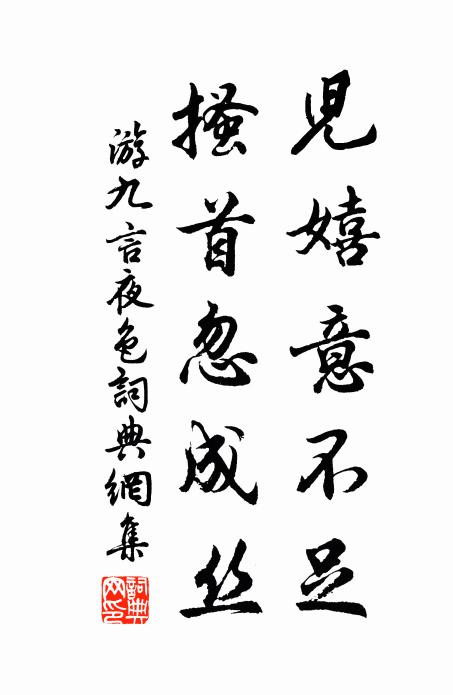 兒嬉意不足
搔首忽成丝
游九言夜色詞典網集
詞典網印